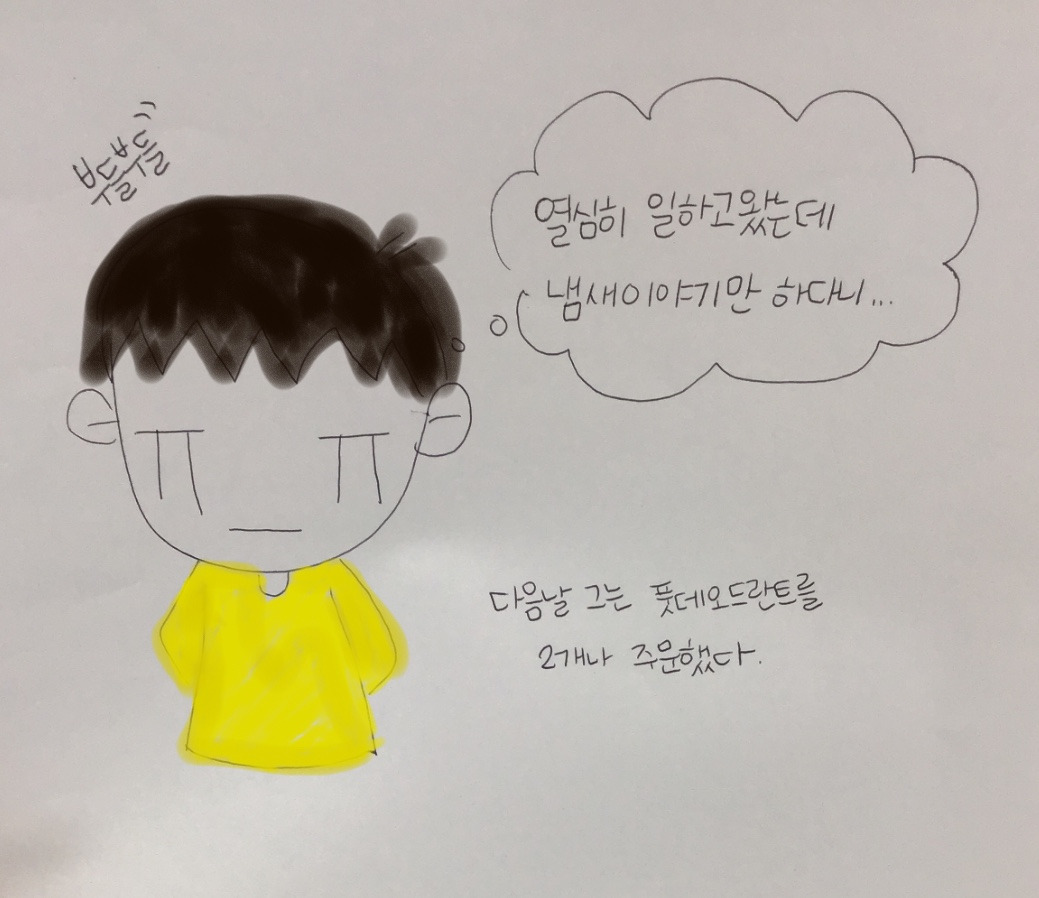 부들부들
열심히 일하고왔는데
냄새이야기만 하다니...
다음날 그는 풋데오드란트를
2개나 주문했다.